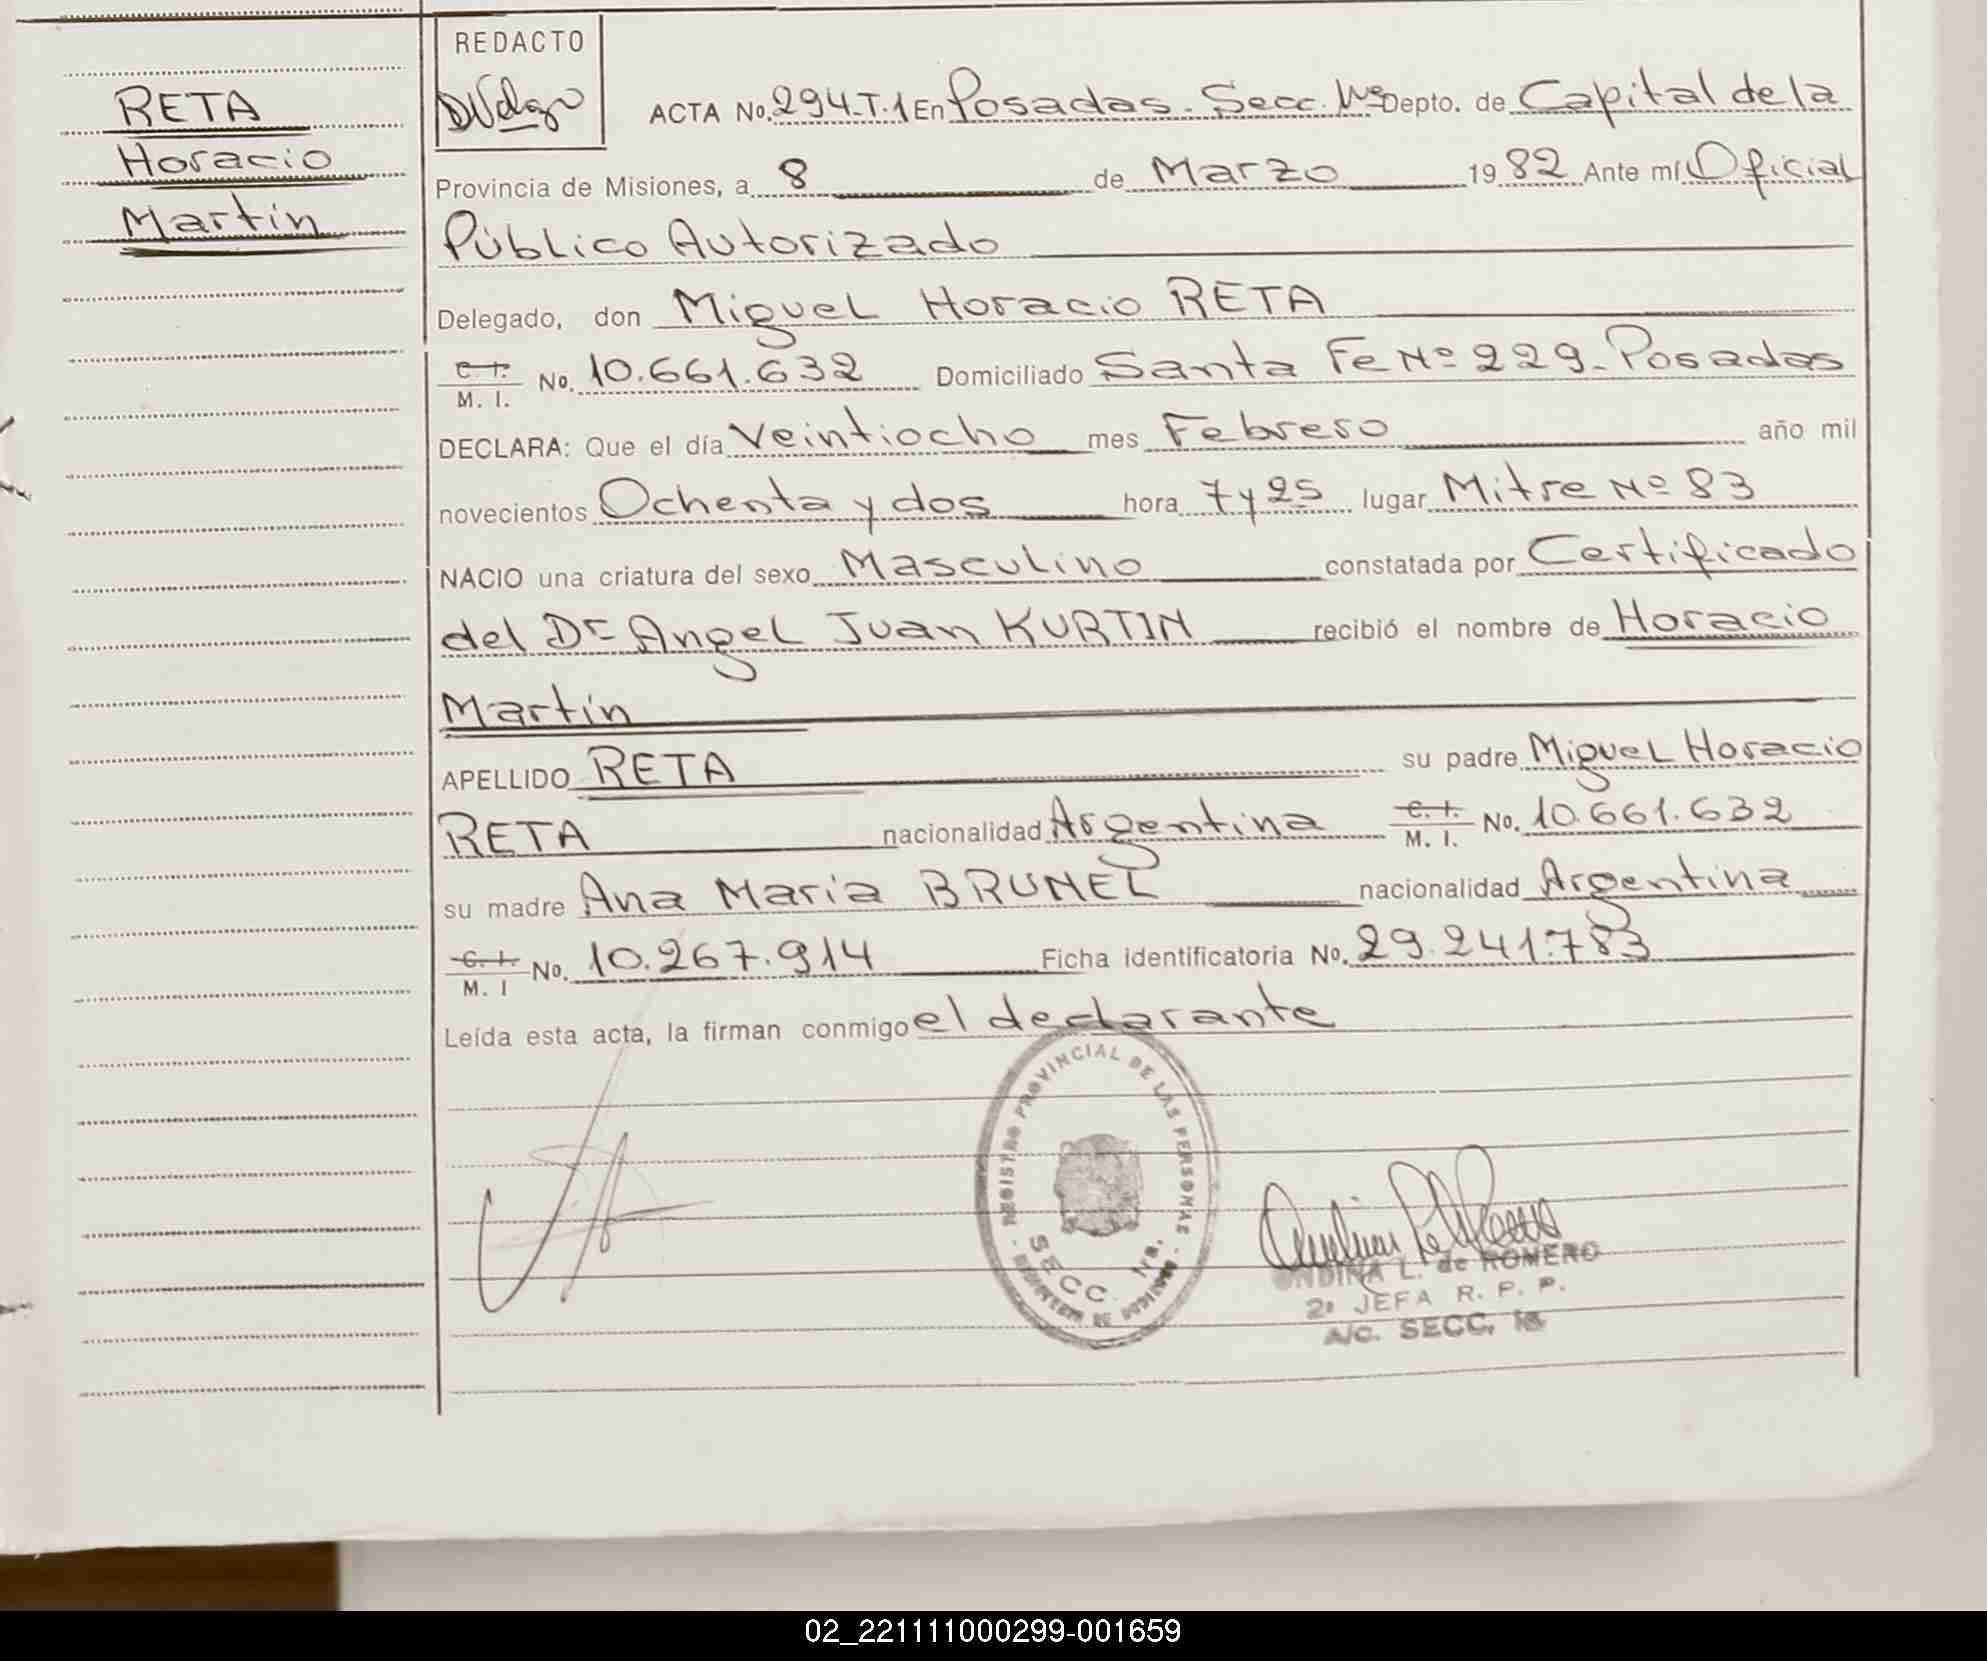 RETA
Horacio
Martín
REDACTO
ACTA No. 294-T.1 En Posadas. Secc. 1ra Depto. de Capital de la
Provincia de Misiones, a 8 de Marzo 1982 Ante mí Oficial
Público Autorizado
Delegado, don Miguel Horacio RETA
C. I.
M. I. No. 10.661.632 Domiciliado Santa Fe Nº 229-Posadas
DECLARA: Que el día Veintiocho mes Febrero año mil
novecientos Ochenta y dos hora 7 y 25 lugar Mitre Nº 83
NACIO una criatura del sexo Masculino constatada por Certificado
del Dr Angel Juan KURTIN recibió el nombre de Horacio
Martín
APELLIDO RETA su padre Miguel Horacio
RETA nacionalidad Argentina C. I.
M. I. No. 10.661.632
su madre Ana María BRUNEL nacionalidad Argentina
C. I.
M. I No. 10.267.914 Ficha identificatoria No. 29.241.783
Leída esta acta, la firman conmigo el declarante
REGISTRO PROVINCIAL DE LAS PERSONAS
SECC. 1ra.
ONDINA L. de ROMERO
2º JEFA R. P. P.
A/C. SECC. 1a
02_221111000299-001659